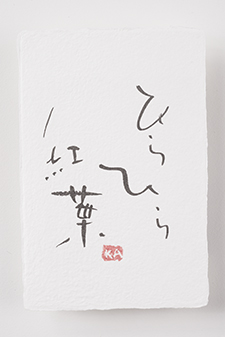 ひらひら
紅葉
KA